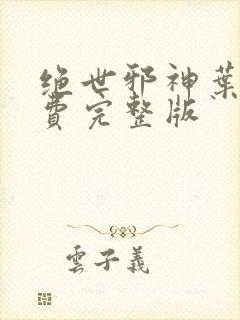 绝世邪神葉
費完整版
雲子義